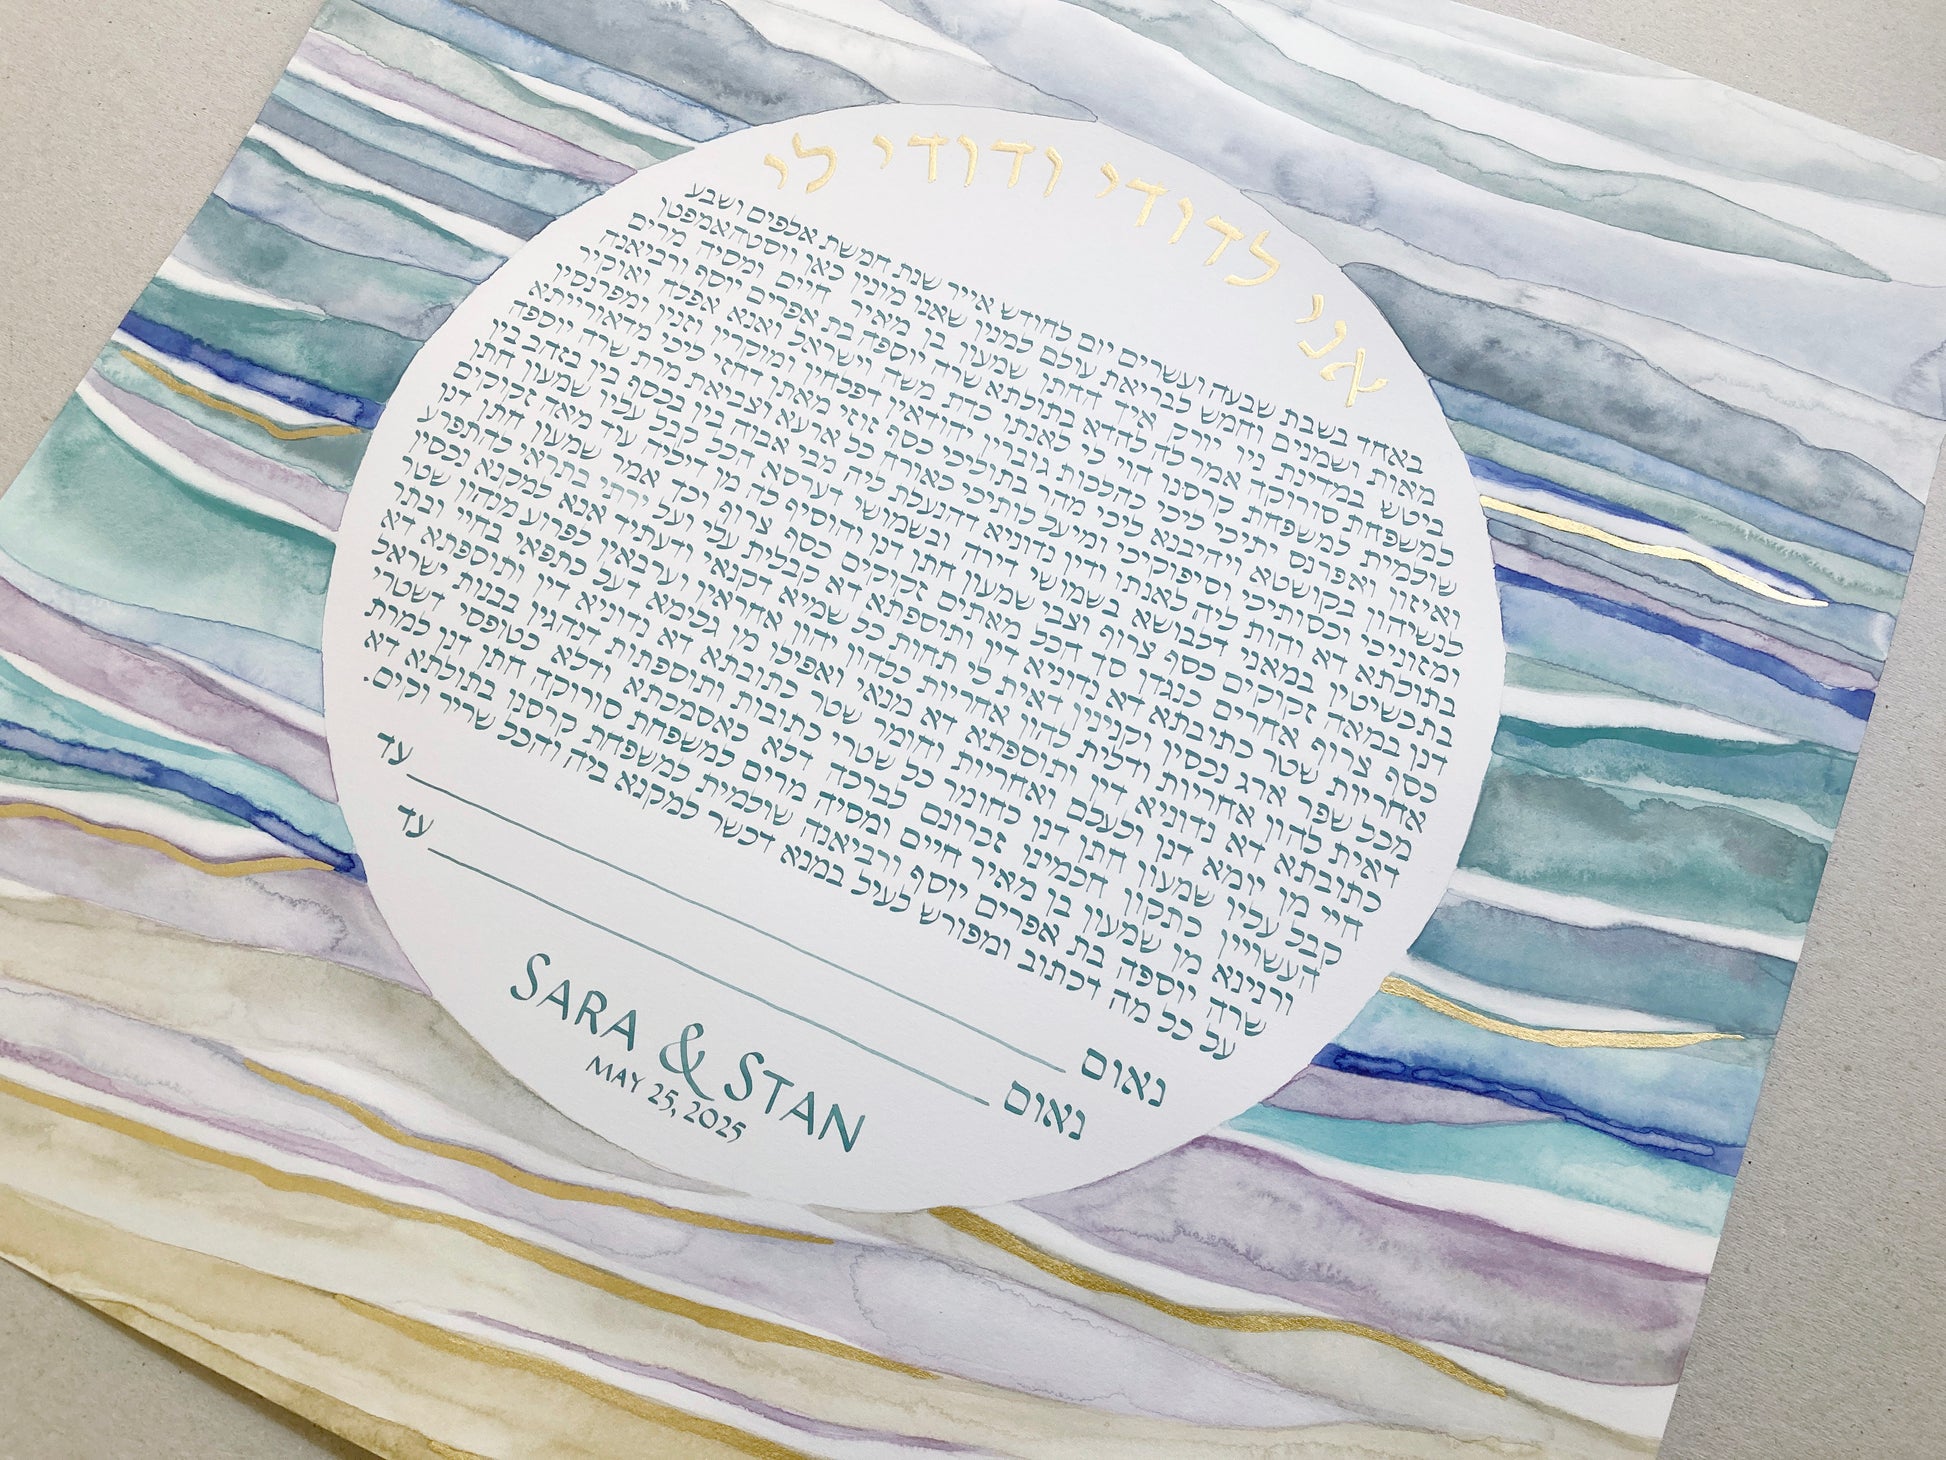 אני לדודי ודודי לי
באחד בשבת שבעה ועשרים יום לחודש אייר שנת חמשת אלפים ושבע
מאות ושמנים וחמש לבריאת עולם למנין שאנו מונין כאן ווסטהאמפטן
ביטש במדינת ניו יורק איך החתן שמעון בן מאיר חיים ומסיה מרים
למשפחת סורוקה אמר לה להדא בתולתא שרה יוספה בת אפרים יוסף ורביאנה
שולמית למשפחת קרסנו הוי לי לאנתו כדת משה וישראל ואנא אפלח ואוקיר
ואיזון ואפרנס יתיכי ליכי כהלכות גוברין יהודאין דפלחין ומוקרין וזנין ומפרנסין
לנשיהון בקושטא ויהיבנא ליכי מהר בתוליכי כסף זוזי מאתן דחזי ליכי מדאורייתא
ומזוניכי וכסותיכי וסיפוקיכי ומיעל לותיכי כאורח כל ארעא וצביאת מרת שרה יוספה
בתולתא דא והות ליה לאנתו ודין נדוניא דהנעלת ליה מבי אבוה בין בכסף בין בזהב בין
בתכשיטין במאני דלבושא בשמושי דירה ובשמושי דערסא הכל קבל עליו שמעון חתן
דנן במאה זקוקים כסף צרוף וצבי שמעון חתן דנן והוסיף לה מן דיליה עוד מאה זקוקים
כסף צרוף אחרים כנגדן סך הכל מאתים זקוקים כסף צרוף וכך אמר שמעון חתן דנן
אחריות שטר כתובתא דא נדוניא דין ותוספתא דא קבלית עלי ועל ירתי בתראי להתפרע
מכל שפר ארג נכסין וקנינין דאית לי תחות כל שמיא דקנאי ודעתיד אנא למקנא נכסין
דאית להון אחריות ודלית להון אחריות כלהון יהון אחראין וערבאין לפרוע מנהון שטר
כתובתא דא נדוניא דין ותוספתא דא מנאי ואפילו מן גלימא דעל כתפאי בחיי ובתר
חיי מן יומא דנן ולעלם ואחריות וחומר שטר כתובתא דא נדוניא דין ותוספתא דא
קבל עליו שמעון חתן דנן כחומר כל שטרי כתובות ותוספתות דנהגין בבנות ישראל
העשויין כתקון חכמינו זכרונם לברכה דלא כאסמכתא ודלא כטופסי דשטרי
וקנינא מן שמעון בן מאיר חיים ומסיה מרים למשפחת סורוקה חתן דנן למרת
שרה יוספה בת אפרים יוסף ורביאנה שולמית למשפחת קרסנו בתולתא דא
על כל מה דכתוב ומפורש לעיל במנא דכשר למקנא ביה והכל שריר וקים.
נאום עד
נאום עד
SARA & STAN
MAY 25, 2025